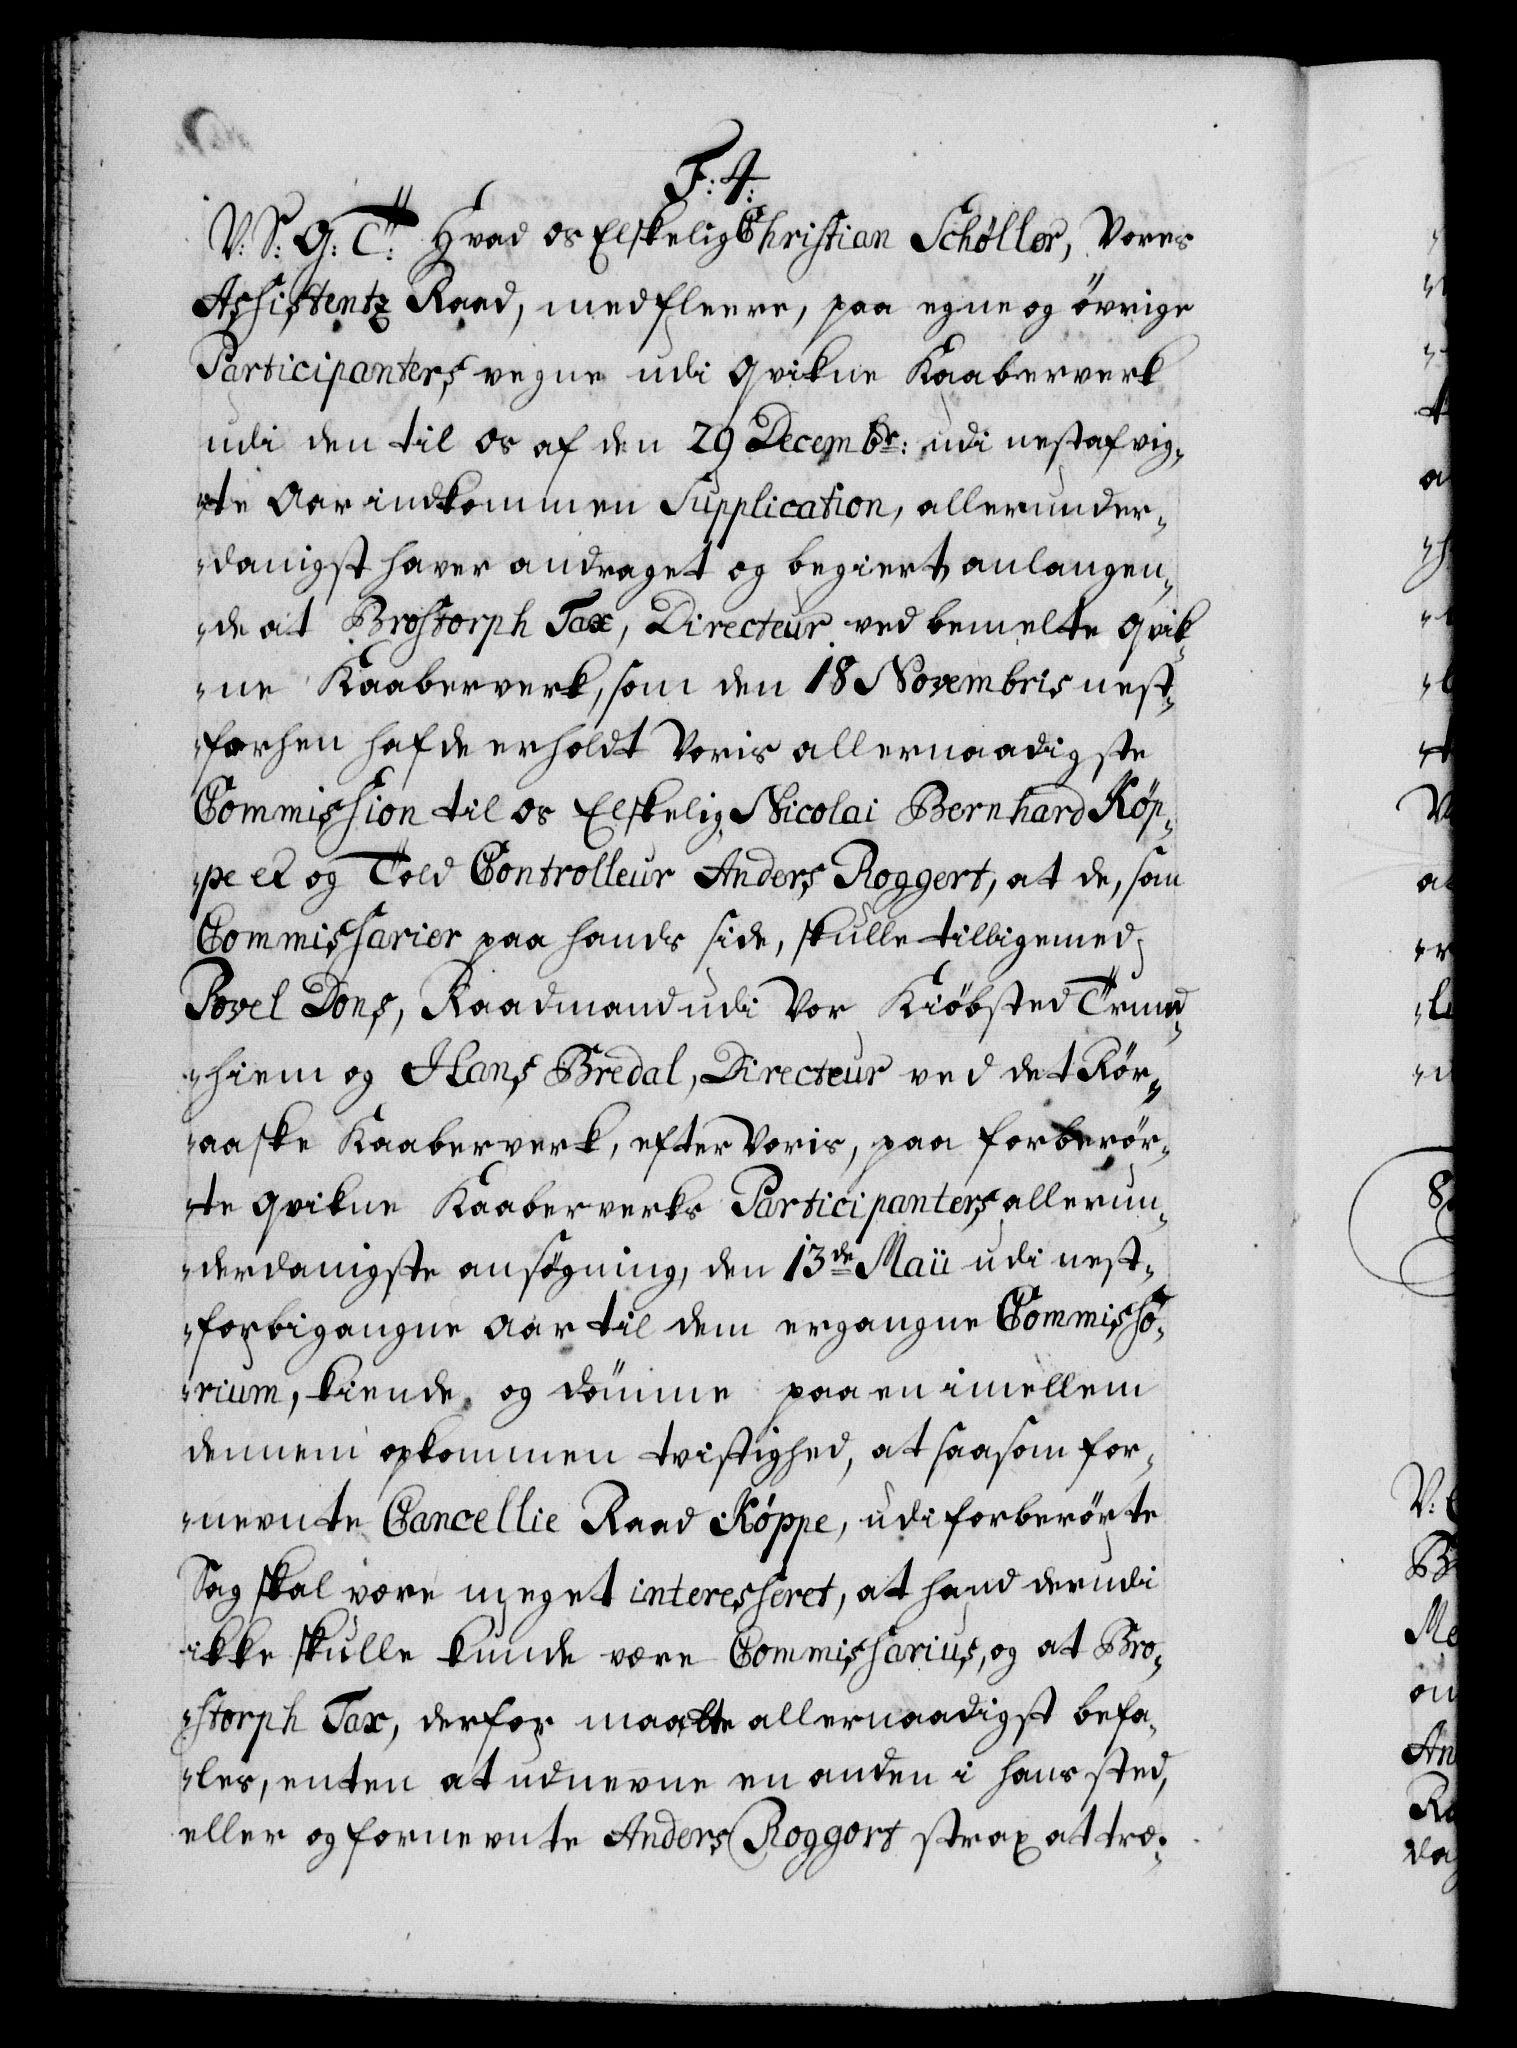 F. 4.
V: S: G: T: Hvad os Elskelig Christian Schøller, Vores
Assistentz Raad, med fleere, paa egne og övrige
Participanters vegne udi Qvikne Kaaberverk
udi den til os af den 29 Decembr: udi nestafvig-
-te Aar indkommen Supplication, allerunder-
-danigst haver andraget og begiert, anlangen-
-de at Brostorph Tax, Directeur ved bemelte Qvik-
-ne Kaaberverk, som den 18 Novembris nest-
-forhen hafde erholdt Voris allernaadigste
Commission til os Elskelig Nicolai Bernhard Køp-
-pe etc og Told Controlleur Anders Roggert, at de, som
Commissarier paa hands side, skulle tilligemed
Povel Dons, Raadmand udi Vor Kiöbsted Trund-
-hiem og Hans Bredal, Directeur ved det Rör-
-aaske Kaaberverk, efter Voris, paa forberör-
-te Qvikne Kaaberverks Participanters allerun-
-derdanigste ansøgning, den 13de Maii udi nest-
-forbigangne Aar til dem ergangne Commisso-
-rium, kiende og dömme paa en imellem
dennem opkommen tvistighed, at saasom for-
-nevnte Cancellie Raad Köppe, udi forberörte
Sag skal være meget interesseret, at hand derudi
ikke skulle kunde være Commissarius, og at Bro-
-storph Tax, derfor maatte allernaadigst befa-
-les, enten at udnevne en anden i hans sted,
eller og fornevnte Anders Roggert strax at træ-